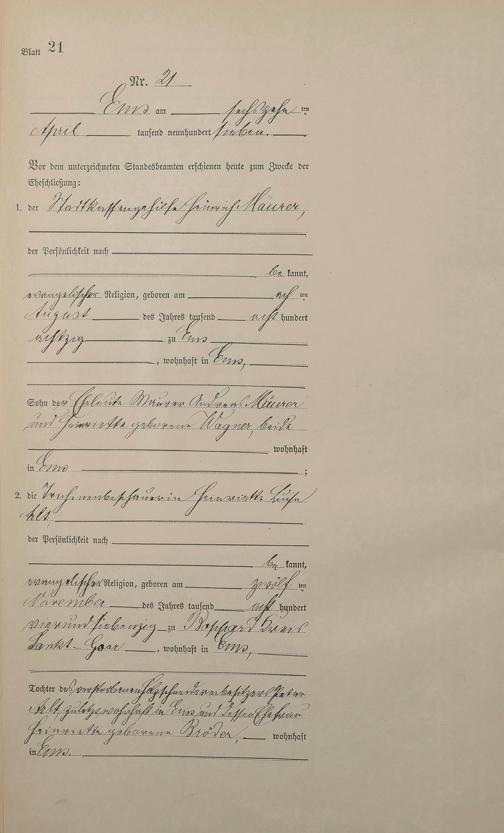 Blatt 21
Nr. 21
Ems am sechszehn ten
April tausend neunhundert sieben.
Vor dem unterzeichneten Standesbeamten erschienen heute zum Zwecke der
Eheschließung:
1. der Stadtkassengehilfe Heinrich Mäurer,
der Persönlichkeit nach
be kannt,
evangelischer Religion, geboren am ach ten
August des Jahres tausend acht hundert
achtzig zu Ems
, wohnhaft in Ems,
Sohn der Eheleute Maurer Andreas Mäurer
und Henriette geborene Wagner, beide
wohnhaft
in Ems ;
2. die Henriette Luise
Alt,
der Persönlichkeit nach
be kannt,
evangelischer Religion, geboren am zwölf ten
November des Jahres tausend acht hundert
vierundsiebenzig zu Boppard Kreis
Sankt-Goar , wohnhaft in Ems,
Tochter des verstorbenen Peter
Alt, zuletzt wohnhaft in Ems und dessen Ehefrau
Henriette geborene Bröder, wohnhaft
in Ems.